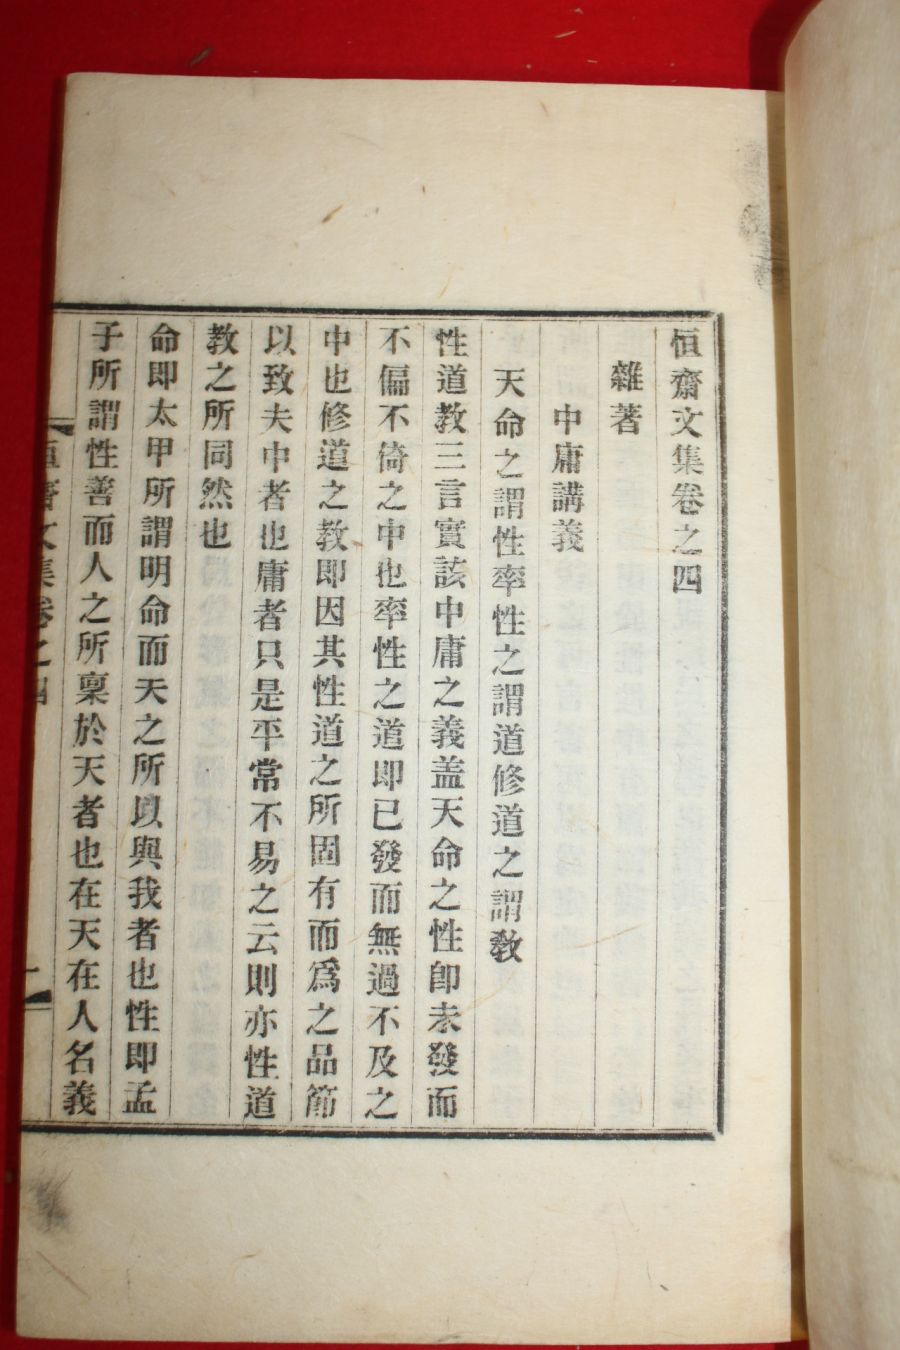 恒齋文集卷之四
雜著
中庸講義
天命之謂性率性之謂道修道之謂教
性道教三言實該中庸之義盖天命之性卽未發而
不偏不倚之中也率性之道即已發而無過不及之
中也修道之教即因其性道之所固有而爲之品節
以致夫中者也庸者只是平常不易之云則亦性道
教之所同然也
命即太甲所謂明命而天之所以與我者也性即孟
子所謂性善而人之所稟於天者也在天在人名義
恒齋文集卷之四